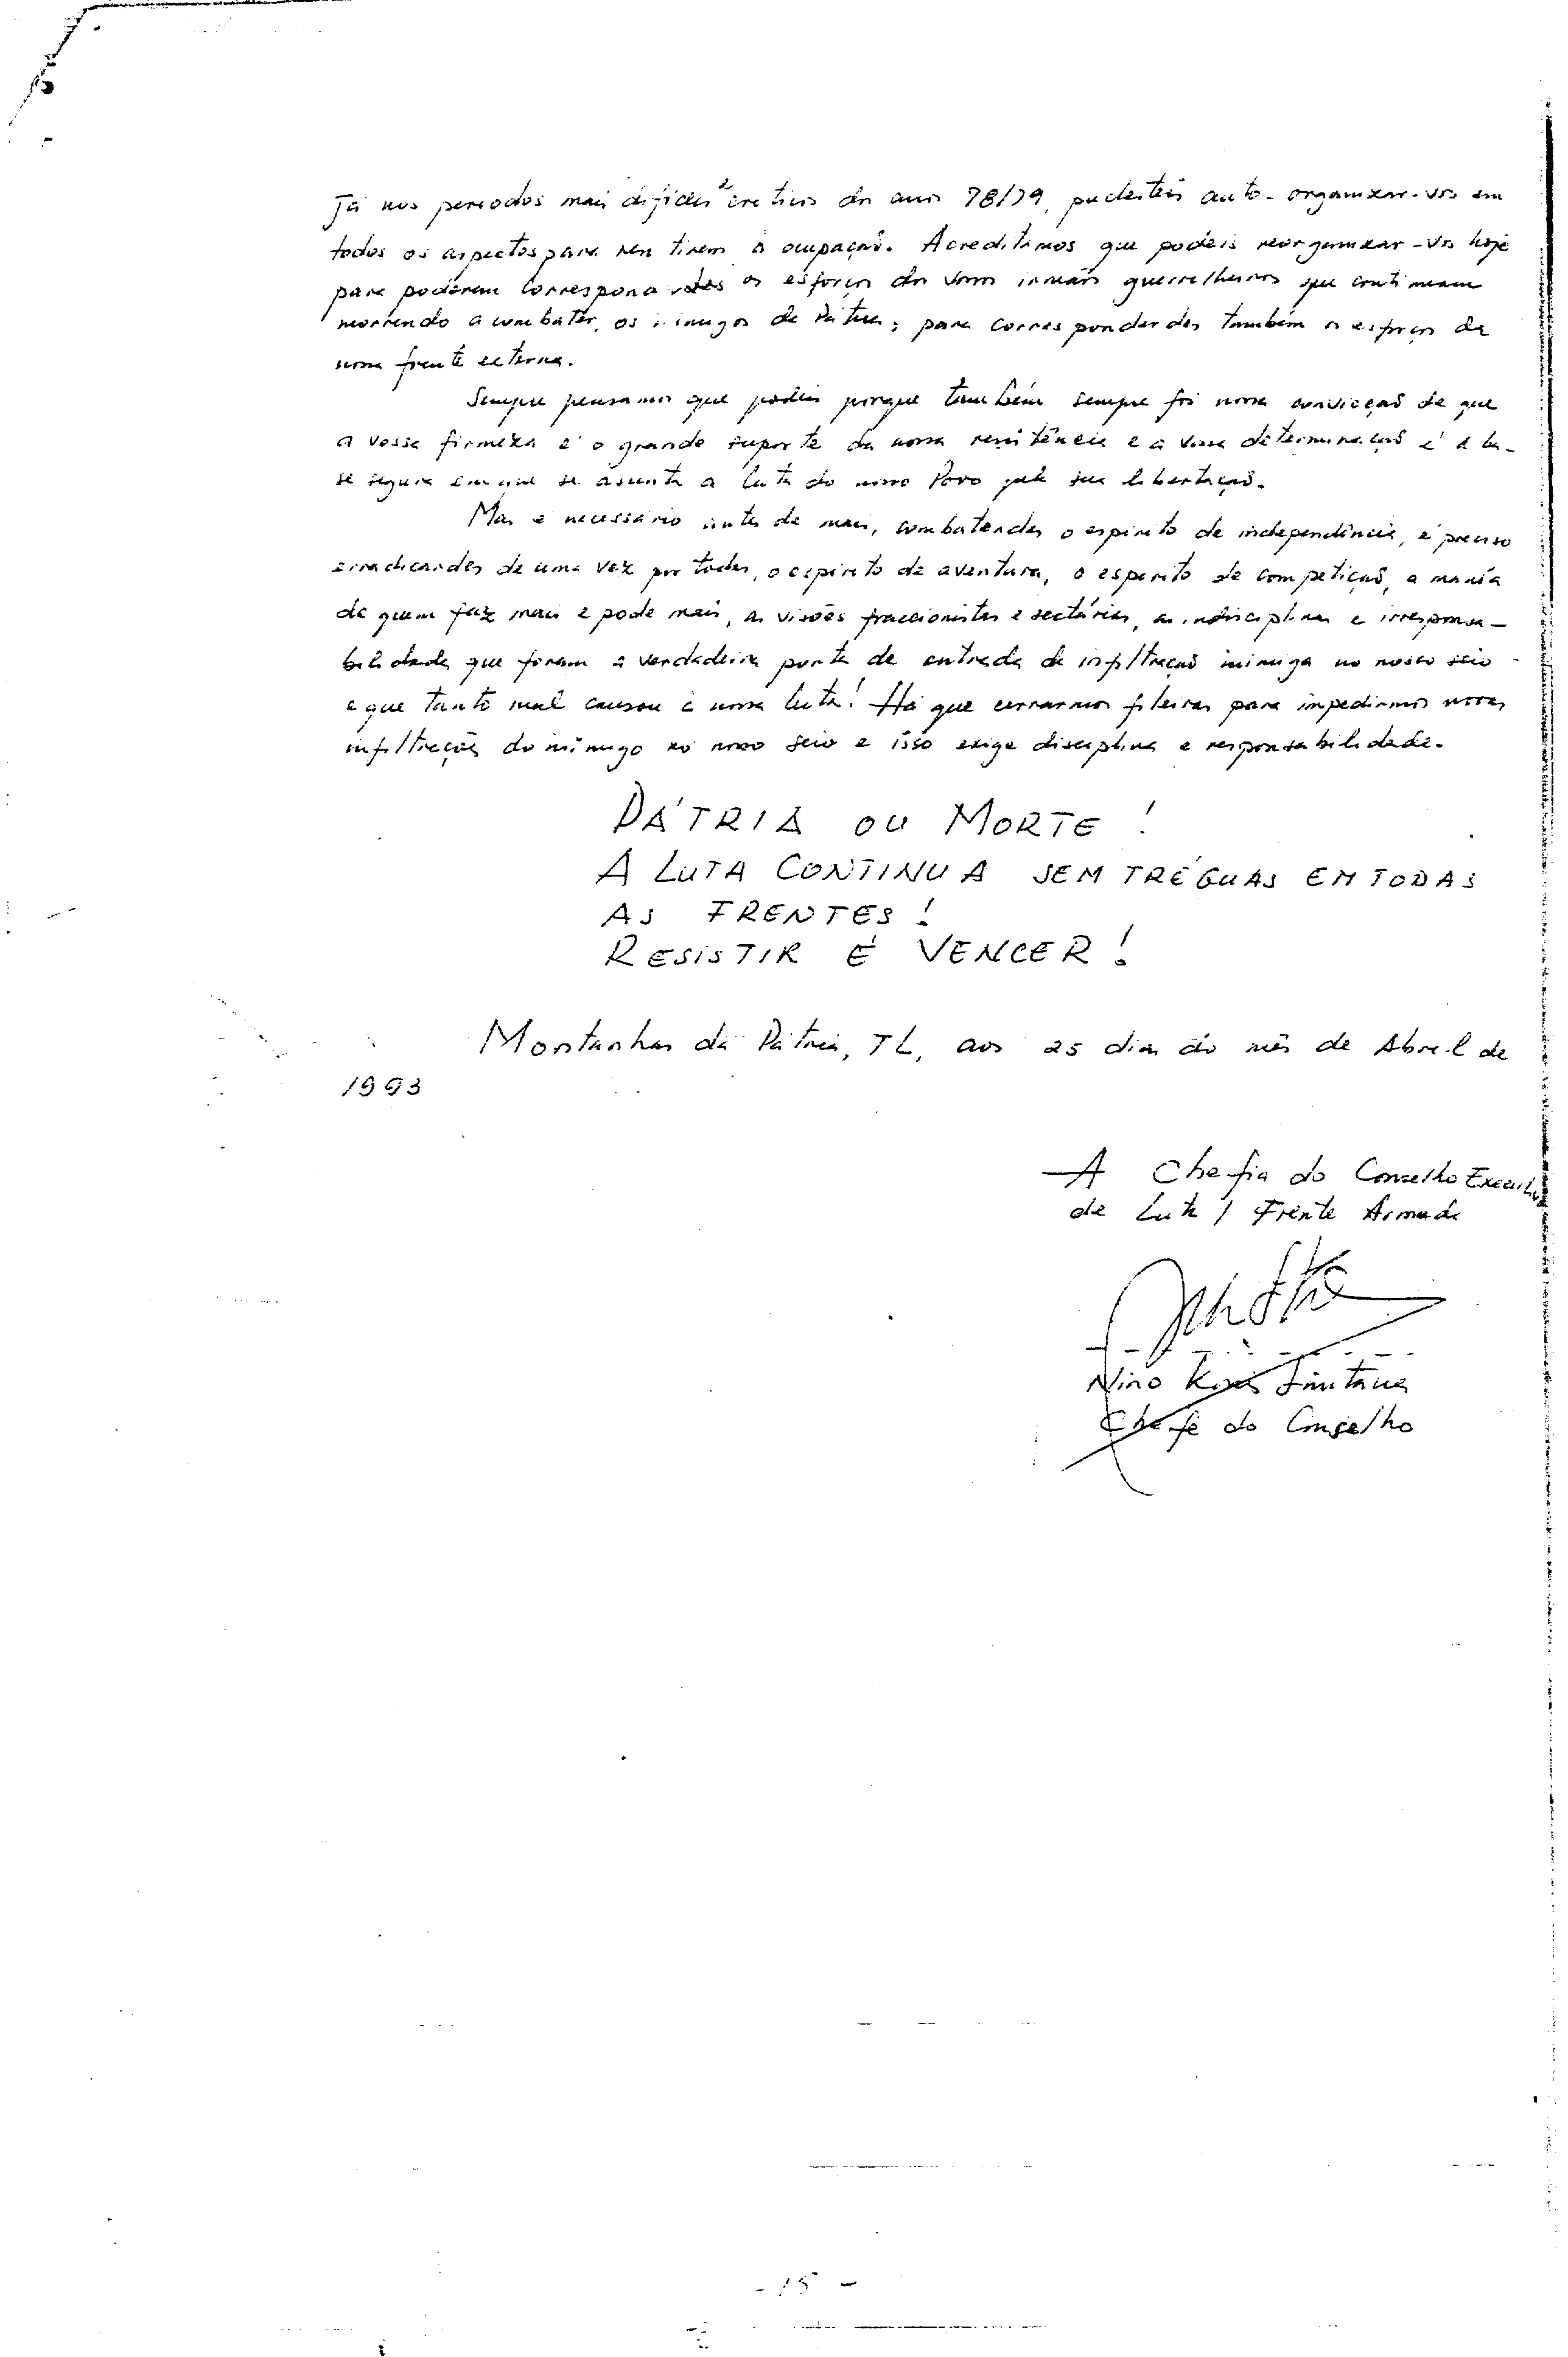 Já nos periodos mais dificeis e criticos do ano 78/79, pudesteis auto-organizar-vos em
todos os aspectos para resistirem à ocupação. Acreditamos que podeis reorganizar-vos hoje
para poderem correspondes os esforços dos vossos irmãos guerrilheiros que continuam
morrendo a combater, os inimigos da Pátria; para corresponderdes também os esforços da
nossa frente externa.
Sempre pensamos que podeis porque também sempre foi nossa convicção de que
a vossa firmeza é o grande suporte da nossa resistência e a vossa determinação é a ba-
se segura em que se assenta a luta do nosso Povo pela sua libertação.
Mas é necessário antes de mais, combaterdes o espirito de independência, é preciso
erradicardes de uma vez por todas, o espirito de aventura, o espirito de competição, a mania
de quem faz mais e pode mais, as visões fraccionistas e sectárias, as indisciplinas e irresponsa-
bilidades que foram a verdadeira porta de entrada da infiltração inimiga no nosso seio
e que tanto mal causou à nossa luta! Há que cerrarmos fileiras para impedirmos novas
infiltrações do inimigo no nosso seio e isso exige disciplina e responsabilidade.
PÁTRIA OU MORTE !
A LUTA CONTINUA SEM TRÉGUAS EM TODAS
AS FRENTES !
RESISTIR É VENCER !
Montanhas da Pátria, TL, aos 25 dias do mês de Abril de
1993
A Chefia do Conselho Executivo
de Luta / Frente Armada
Nino Konis Santana
Chefe do Conselho
- 15 -